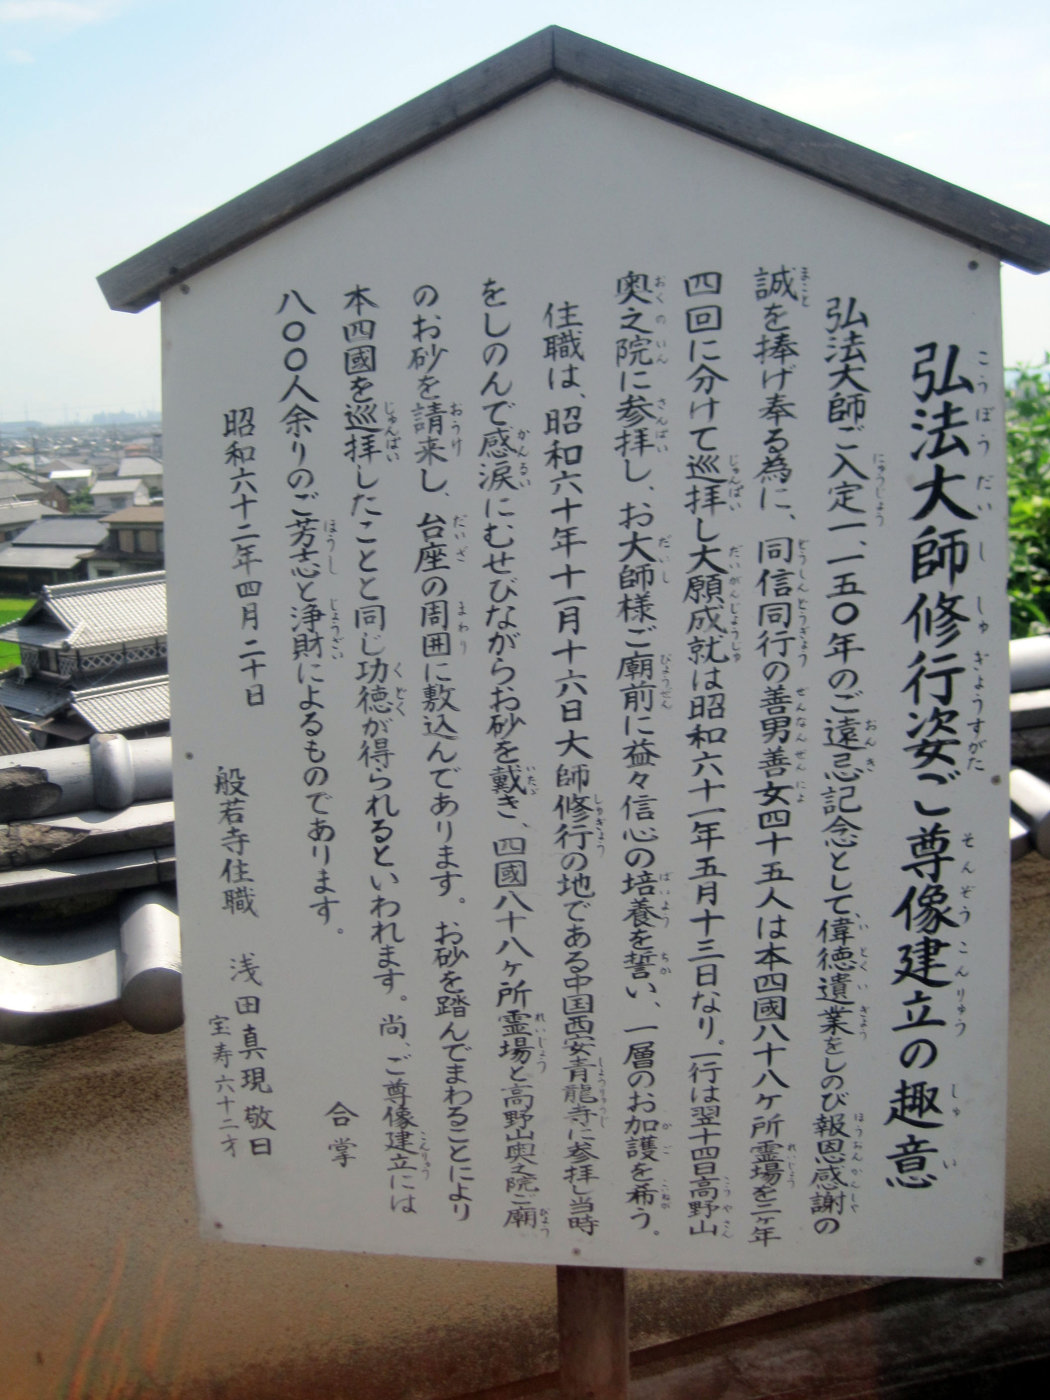 弘法大師修行姿ご尊像建立の趣意
弘法大師ご入定一、一五〇年のご遠忌記念として、偉徳遺業をしのび報恩感謝の
誠を捧げ奉る為に、同信同行の善男善女四十五人は本四國八十八ケ所霊場を三ケ年
四回に分けて巡拝し大願成就は昭和六十一年五月十三日なり。一行は翌十四日高野山
奥之院に参拝し、お大師様ご廟前に益々信心の培養を誓い、一層のお加護を希う。
住職は、昭和六十年十一月十六日大師修行の地である中国西安青龍寺に参拝し当時
をしのんで感涙にむせびながらお砂を戴き、四國八十八ヶ所霊場と高野山奥之院ご廟
のお砂を請来し、台座の周囲に敷込んであります。お砂を踏んでまわることにより
本四國を巡拝したことと同じ功徳が得られるといわれます。尚、ご尊像建立には
八〇〇人余りのご芳志と浄財によるものであります。
合掌
昭和六十二年四月二十日
般若寺住職 浅田真現敬白
宝寿六十二才